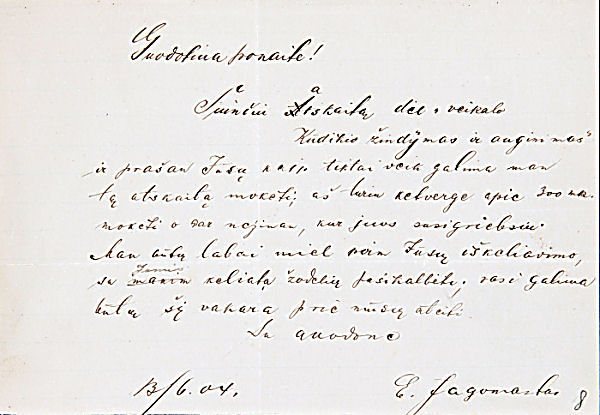 Guodotina ponaite!
Siunčiu atskaitą dėl veikalo
Kudikio žindymas ir auginimas"
ir prašau Jusų kaip tiktai veia galima man
tą atskaitą moketi; aš turiu ketverge apie 300 mk.
moketi o dar nežinau, kur juos susigriebsiu.
Man butų labai miel prin Jusų iškeliavimo,
su Jumis keliatą žodelių pasikalbėti, rasi galima
butų šį vakara prie musų ateiti.
Su guodone
13/6.04. E. Jagomastas
8